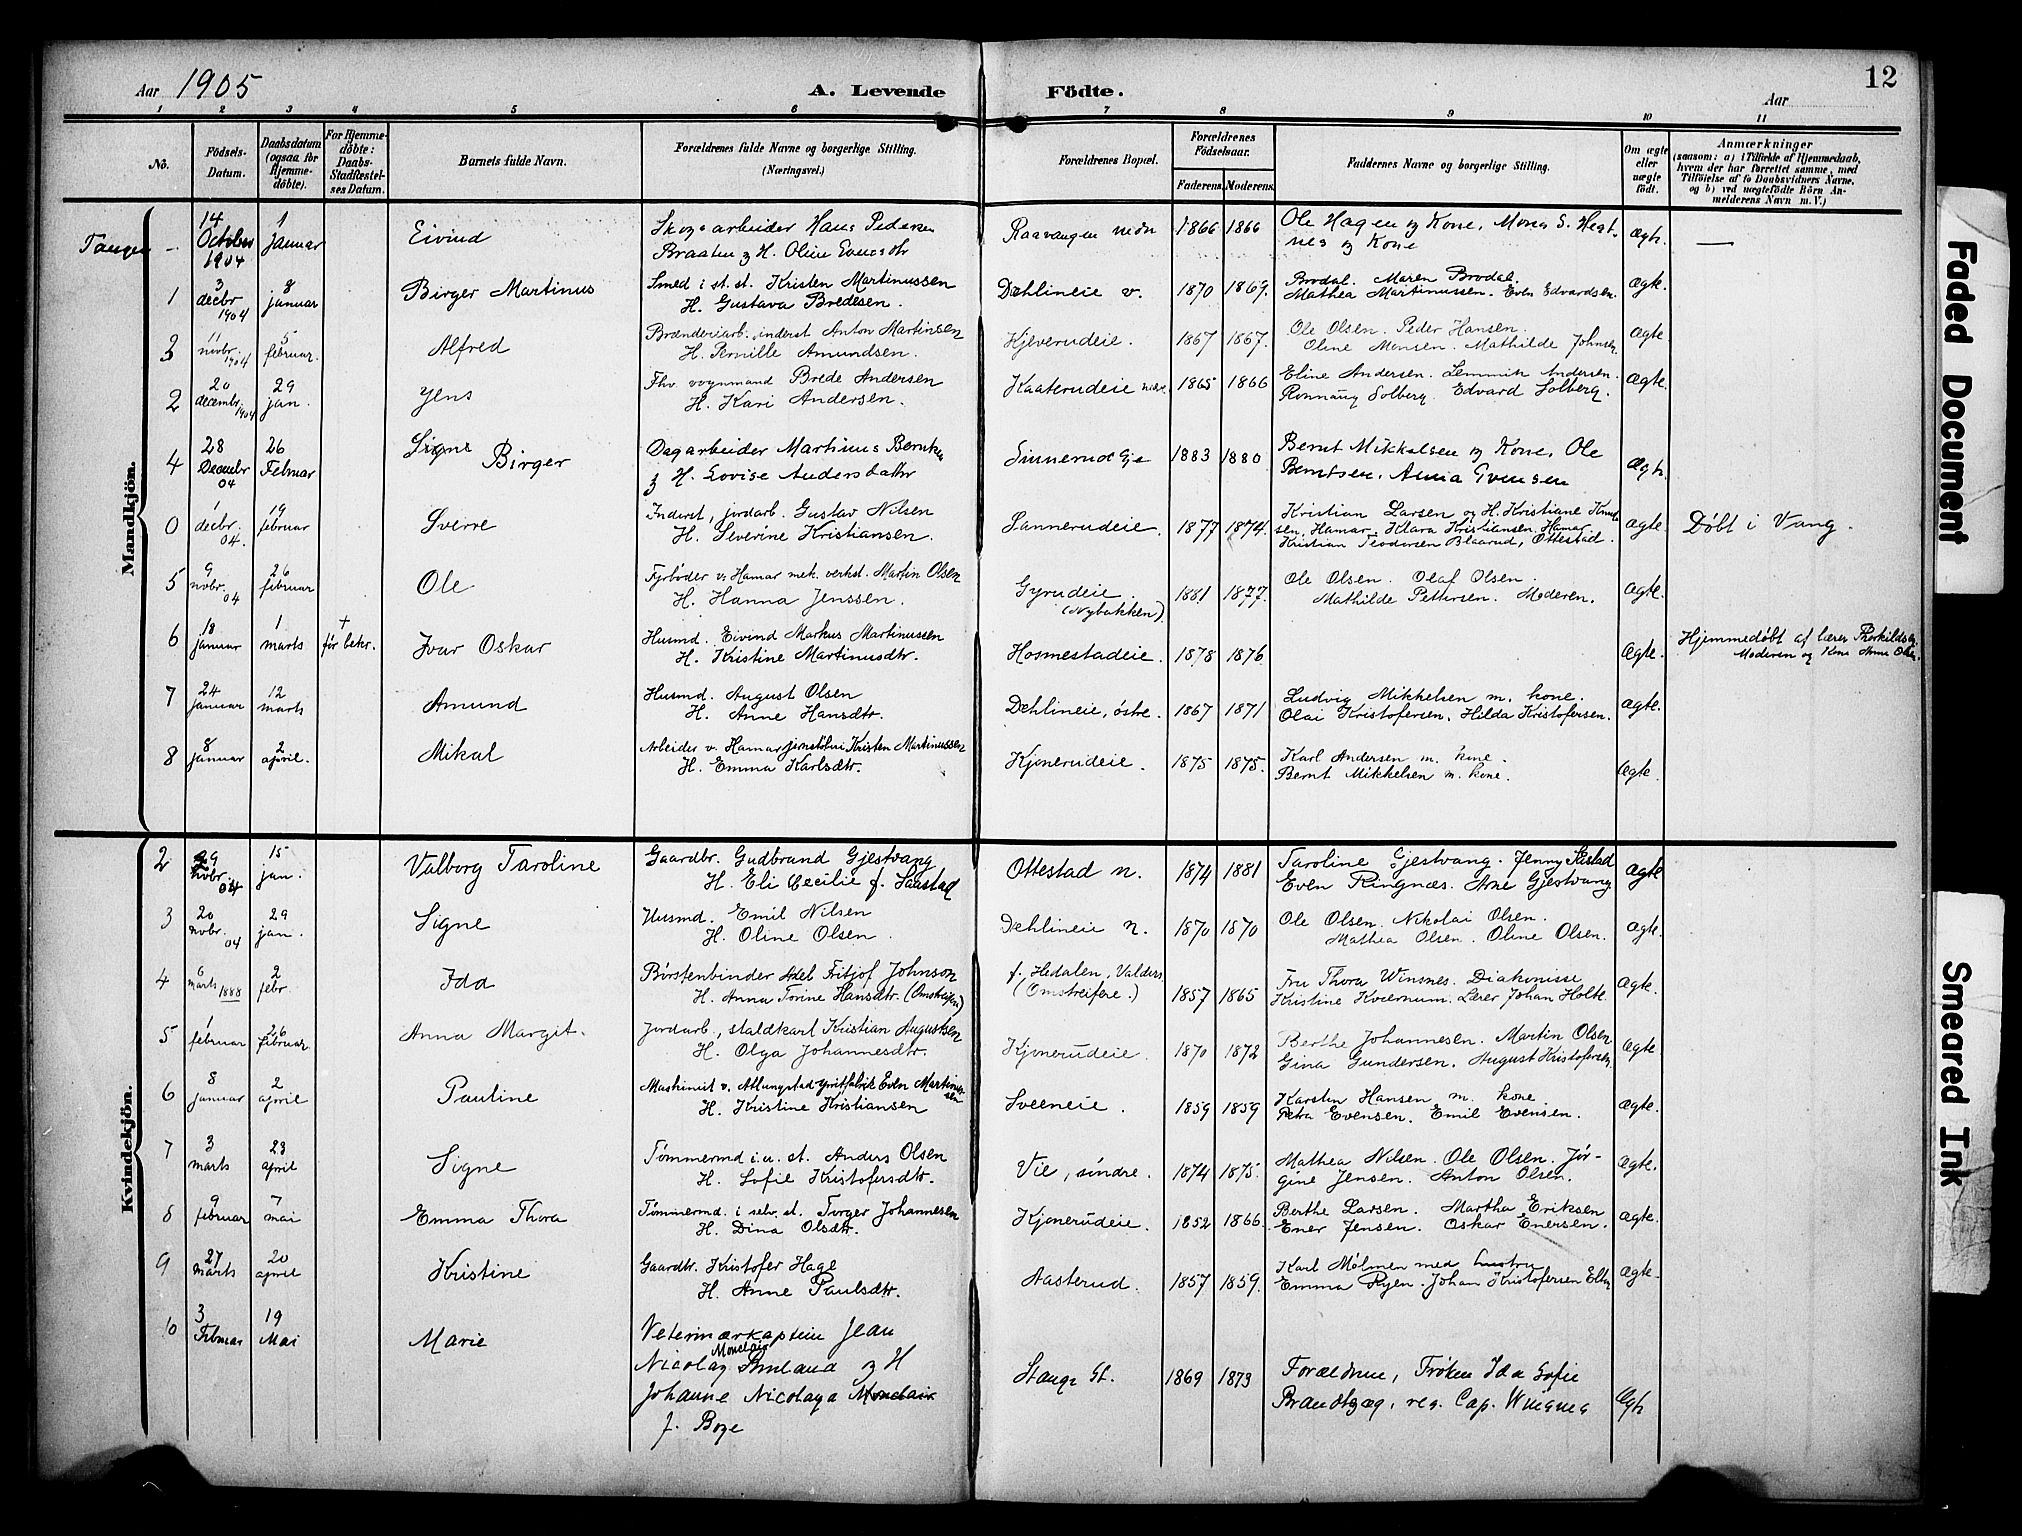 Aar 1905
A. Levende
Födte.
Aar
12
1 2 3 4 5 6 7 8 9 10 11
No.
Födsels-Datum.
Daabsdatum (ogsaa for Hjemmedöbte).
For Hjemmedöbte: Daabs-Stadfæstelses Datum.
Barnets fulde Navn.
Forældrenes fulde Navne og borgerlige Stilling. (Næringsvei.)
Forældrenes Bopæl.
Forældrenes Födselsaar.
Faderens. Moderens.
Faddernes Navne og borgerlige Stilling.
Om ægte eller uægte födt.
Anmærkninger (saasom: a) i Tilfælde af Hjemmedaab, hvem der har forrettet samme, med Tilföielse af to Daabsvidners Navne, og b) ved uægtefödte Börn Anmelderens Navn m. V.)
Mandkjön.
Tangen – 14 October 1904 1 januar Eivind Skogsarbeider Hans Pedersen
Braaten og H. Oline Evensdtr Raavangen nedn 1866 1866 Ole Hagen og Kone, Mons S. Hegt-
nes og Kone Ægte —
1 3 decbr 1904 8 januar Birger Martinus Smed i st. st. Kristen Martinussen
H. Gustava Bredesen. Dæhlineie v. 1870 1869. Brodal. Maren Brodal.
Mathea Martinussen. Even Edvardsen. Ægte.
3 11 novbr. 1904 5 februar. Alfred Brænderiarb. inderst Anton Martinsen
H. Pernille Amundsen. Kjeverudeie. 1867 1867. Ole Olsen. Peder Hansen.
Oline Monsen. Mathilde Johnsen Ægte.
2 20 decembr. 1904 29 jan. Jens Fhv. vognmand Brede Andersen
H. Kari Andersen. Kaaterudeie 1865 1866 Eline Andersen. Andersen.
Ronnaug Solberg. Edvard Solberg. Ægte.
4 28 Decembr 04 26 Februar Signe Birger Dagarbeider Martinus Berntsen
og H. Lovise Andersdatter Sinnerud Eje 1883 1880 Bernt Mikkelsen og Kone, Ole
Berntsen, Anna Evensen Ægte
0 1 decbr. 04. 19 februar Sverre Inderst, jordarb. Gustav Nilsen
H. Severine Kristiansen. Sannerudeie. 1877 1874. Kristian Larsen og H. Kristiane Knud-
sen, Hamar. Klara Kristiansen, Hamar.
Kristian Teodorsen Blaarud, Ottestad. Ægte. Døbt i Vang.
5 9 novbr. 04 26 februar Ole Fyrbøder v. Hamar mek. verkst. Martin Olsen
H. Hanna Jenssen. Gyrudeie.
(Nybakken) 1881 1877. Ole Olsen. Olaf Olsen.
Mathilde Pettersen. Moderen. Ægte.
6 18 januar 1 marts + før bekr. Ivar Oskar Husmd. Eivind Markus Martinussen
H. Kristine Martinusdtr. Hosmestadeie. 1878 1876 Ægte. Hjemmedøbt af lærer Thorkildsen
Moderen og Kone Anne Olsen.
7 24 januar 12 marts Amund Husmd. August Olsen
H. Anne Hansdtr. Dæhlineie, østre. 1867 1871 Ludvig Mikkelsen m. kone.
Olai Kristofersen. Hilda Kristofersen. Ægte.
8 8 januar 2 april. Mikal Arbeider v. Hamar jernstøberi Kristen Martinussen
H. Emma Karlsdtr. Kjonerudeie. 1875 1875. Karl Andersen m. kone.
Bernt Mikkelsen m. kone. Ægte.
Kvindekjön.
2 29 novbr. 04 15 jan. Valborg Taroline Gaardbr. Gudbrand Gjestvang
H. Eli Cecilie f. Saastad Ottestad n. 1874 1881 Taroline Gjestvang. Jenny Saastad
Even Ringnæs. Arne Gjestvang Ægte
3 20 novbr. 04 29 jan. Signe Husmd. Emil Nilsen
H. Oline Olsen. Dæhlineie n. 1870 1870 Ole Olsen. Nikolai Olsen.
Mathea Olsen. Oline Olsen. Ægte.
4 6 marts 1888 2 febr. Ida Børstenbinder Fritjof Johnson
H. Anna Torine Hansdtr. (Omstreifere) f. Hedalen, Valders
(Omstreifere.) 1857 1865 Fru Thora Winsnes. Diakonisse
Kristine Kvernum. Lærer Johan Holte. Ægte.
5 1 februar 26 februar. Anna Margit. Jordarb., staldkarl Kristian Augustsen
H. Olga Johannesdtr. Kjonerudeie. 1870 1872 Berthe Johannesen. Martin Olsen
Gina Gundersen. August Kristofersen. Ægte
6 8 januar 2 april Pauline Maskinist v. Atlungstad spritfabrik Even Martinus-
sen
H. Kristine Kristiansen Sveeneie. 1859 1859 Karsten Hansen m. kone.
Petra Evensen. Emil Evensen. Ægte.
7 3 marts 23 april Signe Tømmermd i. u. st. Anders Olsen
H. Sofie Kristofersdtr. Vie, søndre. 1874 1875. Mathea Nilsen. Ole Olsen. Jør-
gine Jensen. Anton Olsen. Ægte.
8 9 februar 7 mai Emma Thora Tømmermd. i selv. st. Torger Johannesen
H. Dina Olsdtr. Kjonerudeie. 1852 1866. Berthe Larsen. Martha Eriksen
Ener Jensen. Oskar Enersen. Ægte.
9 27 marts 20 april Kristine Gaardbr. Kristofer Hage
H. Anne Paulsdtr. Aasterud. 1857 1859. Karl Mølmen med hustru
Emma Ryen. Johan Kristofersen Ægte.
10 3 Februar 19 Mai Marie Veterinærkaptein Jean
Nicolay Monclair Smeland og H
Johanne Nicolaya Monclair
f. Boye Stange St. 1869 1873 Forældrene, Frøken Ida Sofie
Brandtzæg, res. Cap. Winsnes Ægte
Faded Document
Smeared Ink